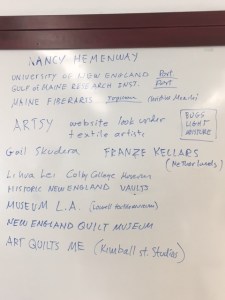 NANCY HEMENWAY
UNIVERSITY OF NEW ENGLAND Port
GULF OF MAINE RESEARCH INST. Port
MAINE FIBERARTS
ARTSY website look under
textile artists
BUGS
LIGHT
MOISTURE
Gail Skudera FRANZE KELLARS
(Netherlands)
Lihua Lei Colby College Museum
HISTORIC NEW ENGLAND VAULTS
MUSEUM L.A.
NEW ENGLAND QUILT MUSEUM
ART QUILTS ME (Kimball St. Studios)